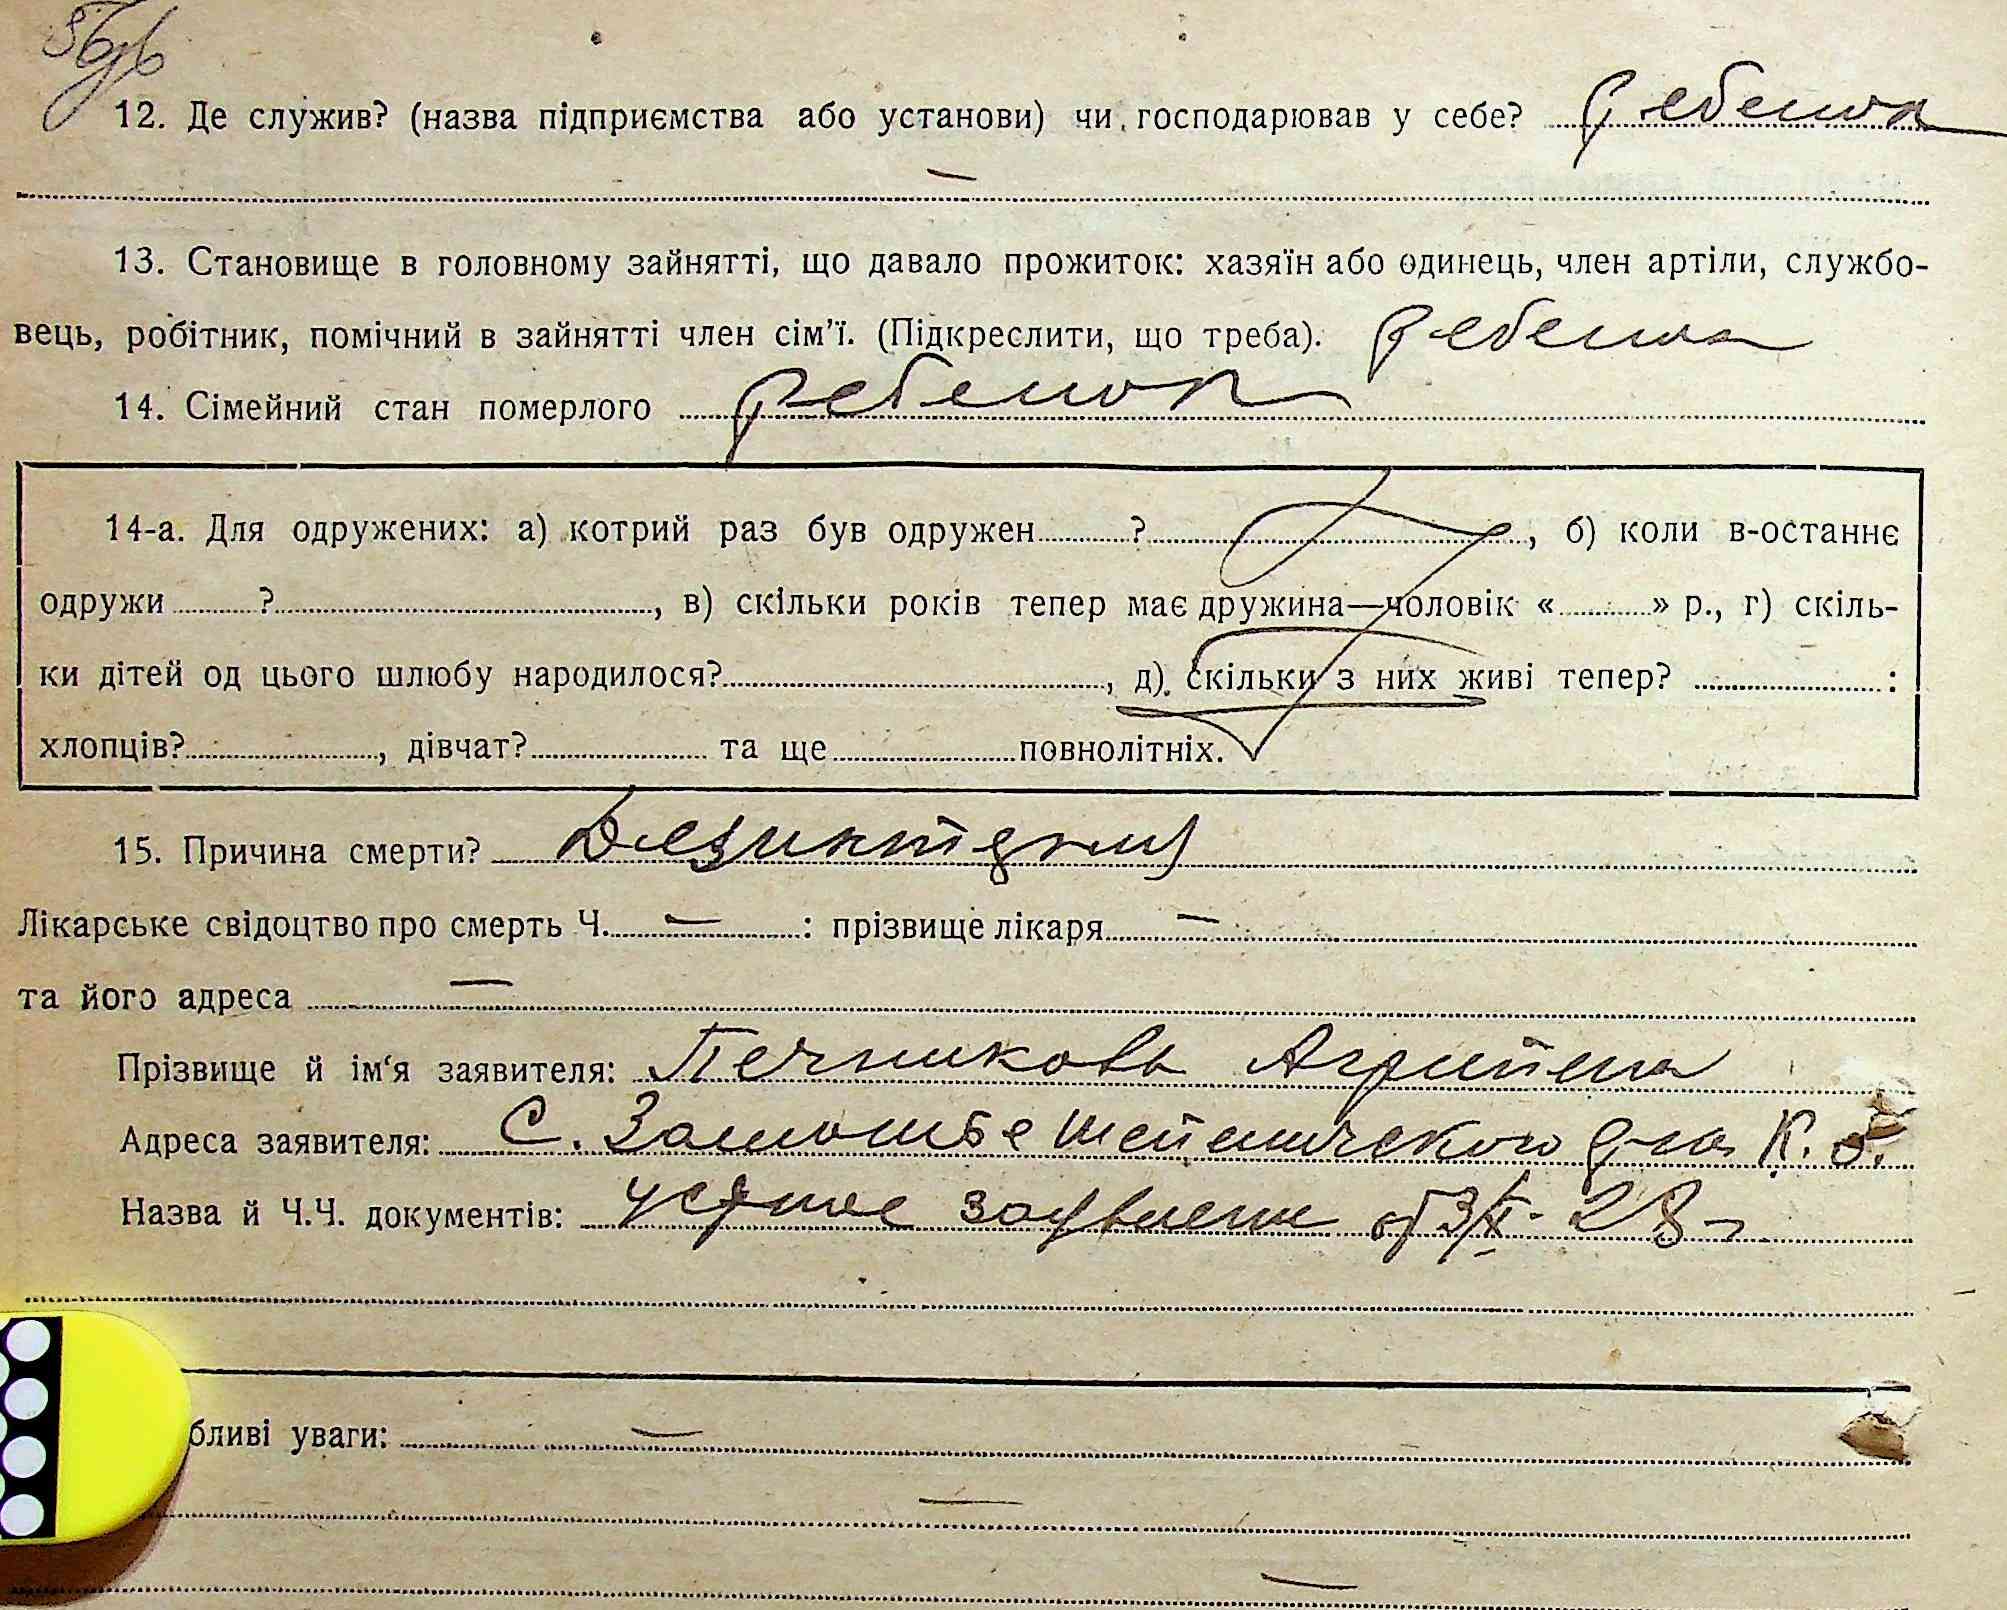 12. Де служив? (назва підприємства або установи) чи господарював у себе? ребенок
—
13. Становище в головному зайнятті, що давало прожиток: хазяїн або одинець, член артіли, службо-
вець, робітник, помічний в зайнятті член сім'ї. (Підкреслити, що треба). ребенок
14. Сімейний стан померлого ребенок
14-а. Для одружених: а) котрий раз був одружен ? , б) коли в-останнє
одружи ? , в) скільки років тепер має дружина—чоловік « » р., г) скіль-
ки дітей од цього шлюбу народилося? , д) скільки з них живі тепер? :
хлопців? , дівчат? та ще повнолітніх.
15. Причина смерти? Дезинтерия
Лікарське свідоцтво про смерть Ч. — : прізвище лікаря —
та його адреса —
Прізвище й ім'я заявителя: Печникова Агрипена
Адреса заявителя: С. Замошье р-на К. О.
Назва й Ч.Ч. документів: устное заявление от 3/X- 28 г
бливі уваги: —
—
—